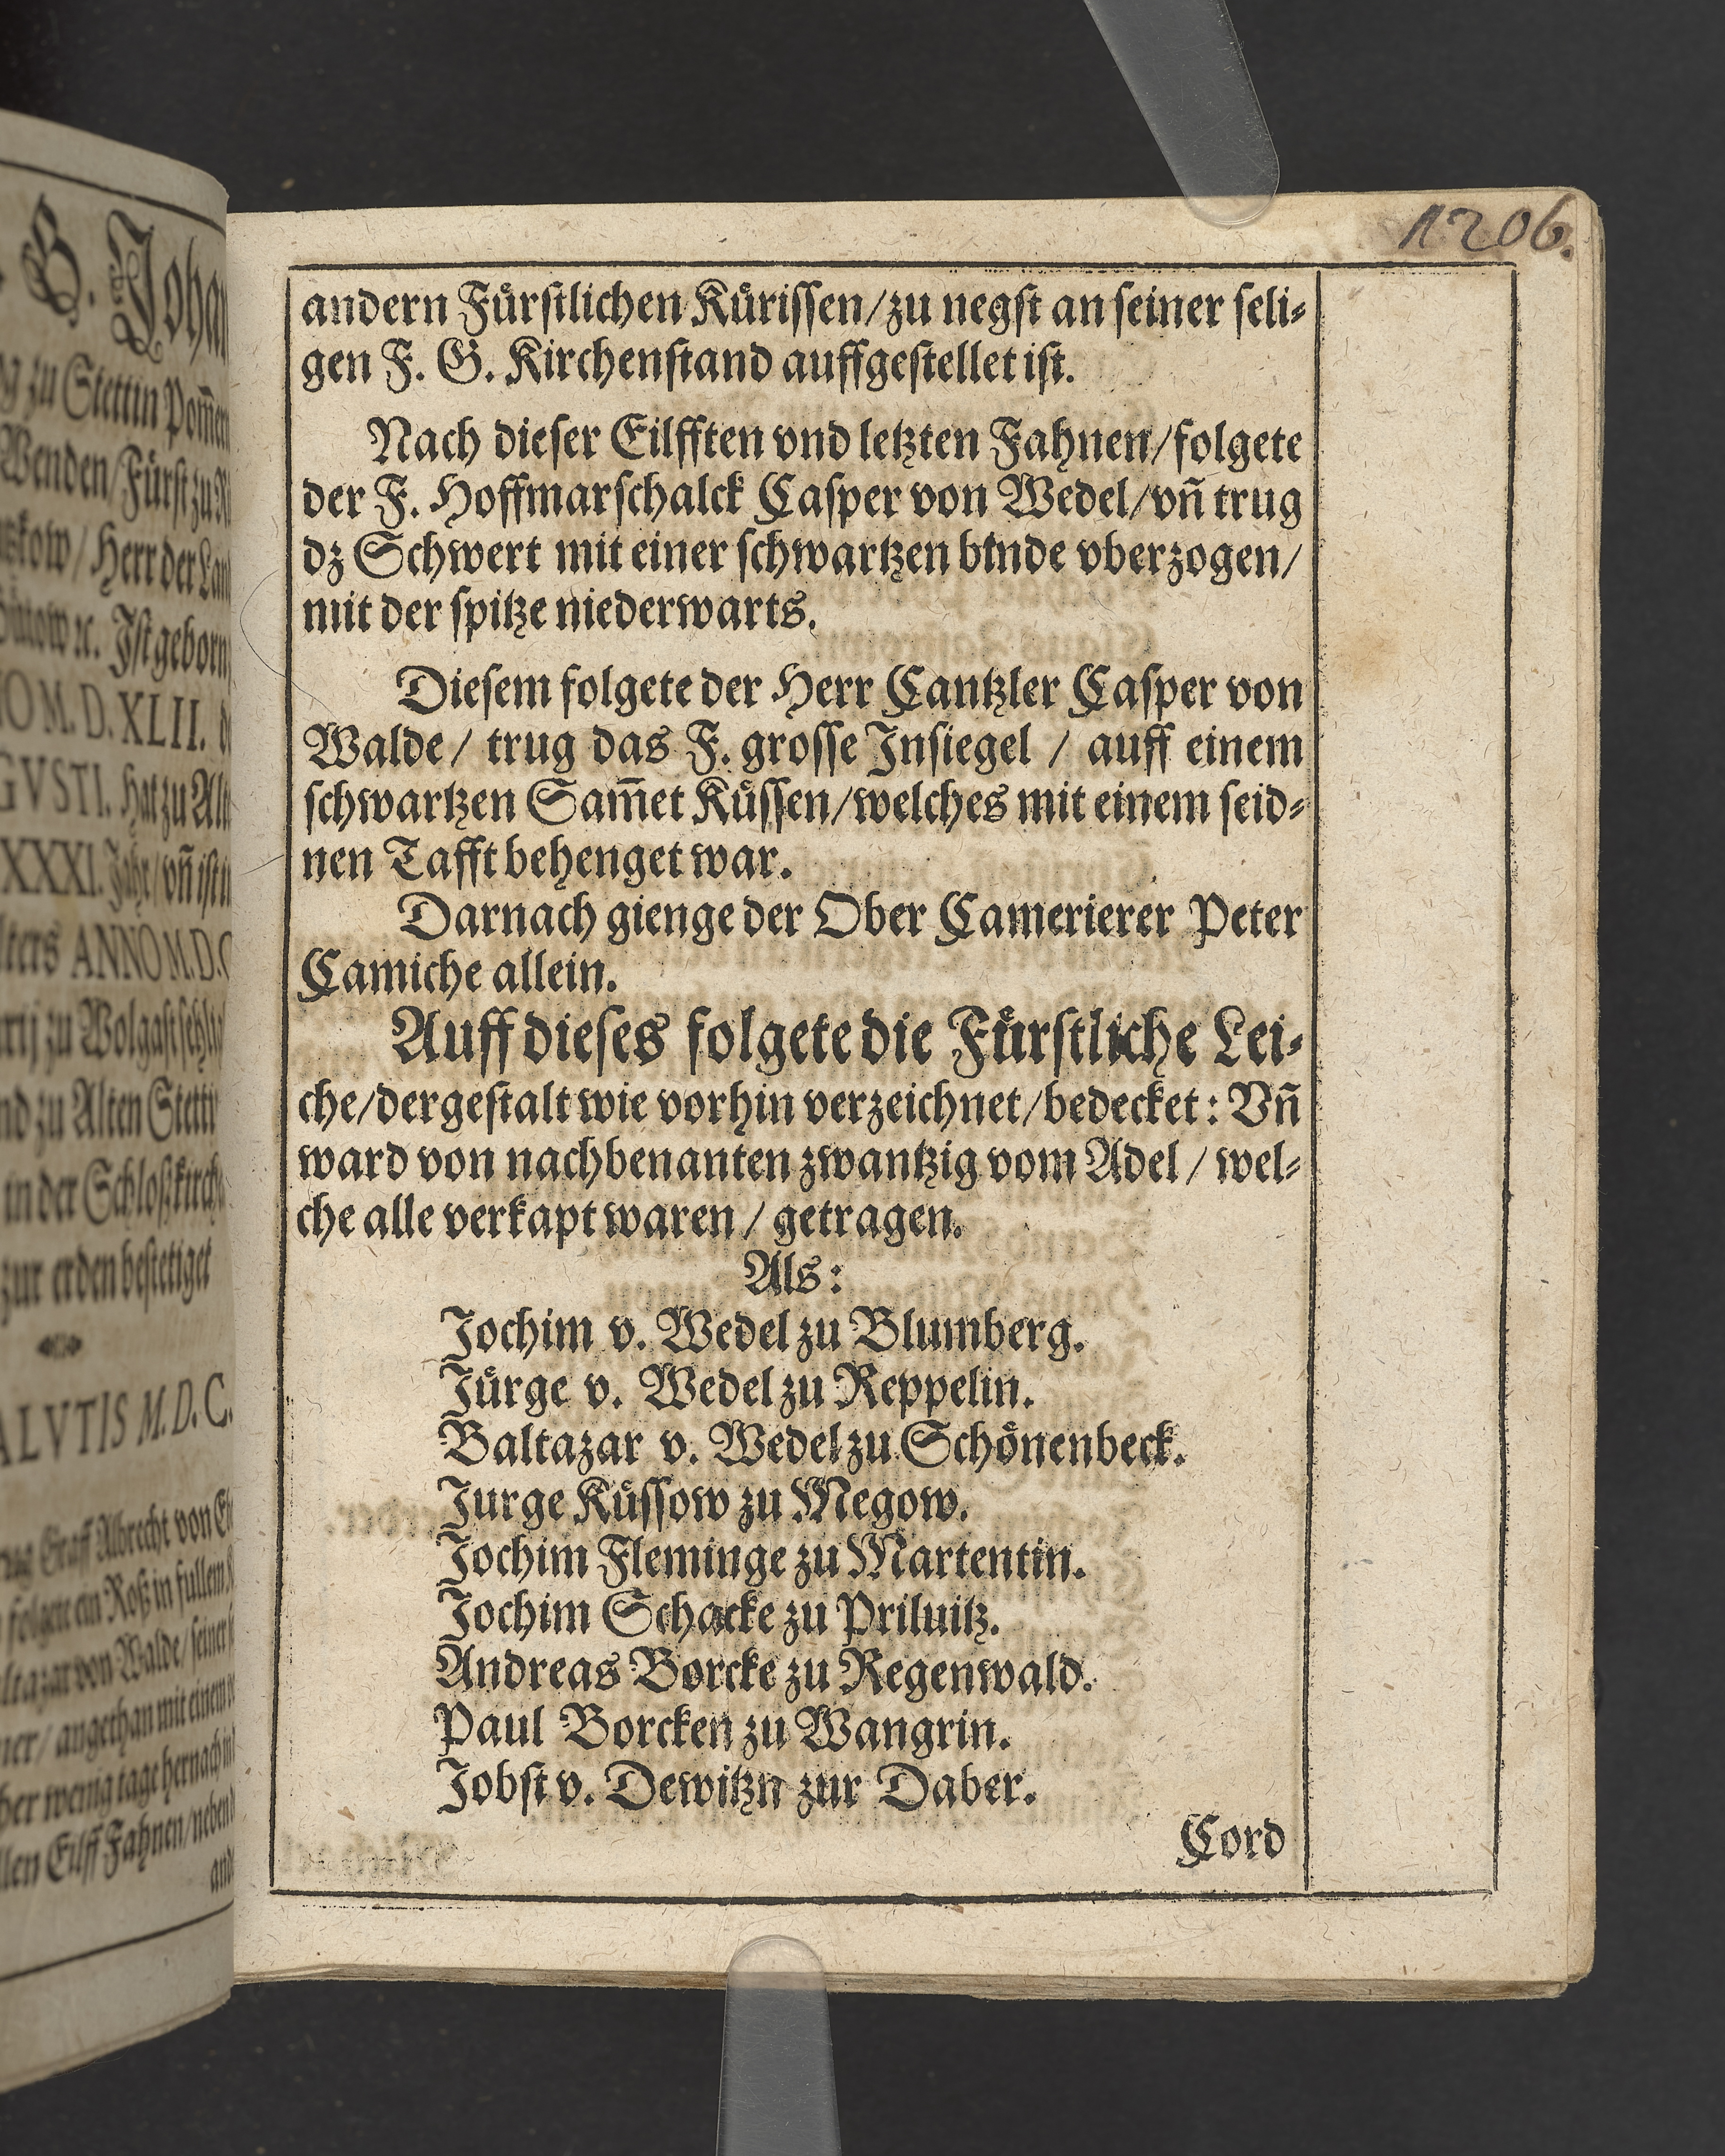 G. Joha
zu Stettin Pom̄ern
Wenden/ Fürst zu R
Herr der Lan
ꝛc. Ist geborn
M. D. XLII.
GVSTI. hat zu Alt
XXXI. Jahr/ vn̄ ist
ANNO M.D.C
zu Wolgast
zu Alten Stettin
in der Schloßkirch
zur erden bestetiget
ALVTIS M. D. C.
Graff Albrecht von
folgete ein Roß in fullem
von Walde/ seiner
angethan mit einem
wenig tage hernach
Eilff Fahnen/ neben
and
1206.
andern Fuͤrſtlichen Kuͤriſſen/ zu negſt an ſeiner ſeli⸗
gen F. G. Kirchenſtand auffgeſtellet iſt.
Nach dieſer Eilfften vnd letzten Fahnen/ folgete
der F. Hoffmarſchalck Caſper von Wedel/ vn̄ trug
dz Schwert mit einer ſchwartzen binde vberzogen/
mit der ſpitze niederwarts.
Dieſem folgete der Herr Cantzler Caſper von
Walde/ trug das F. groſſe Inſiegel / auff einem
ſchwartzen Sam̄et Kuͤſſen/ welches mit einem ſeid⸗
nen Tafft behenget war.
Darnach gienge der Ober Camerierer Peter
Camiche allein.
Auff dieſes folgete die Fuͤrſtliche Lei⸗
che/ dergeſtalt wie vorhin verzeichnet/ bedecket: Vn̄
ward von nachbenanten zwantzig vom Adel / wel⸗
che alle verkapt waren / getragen.
Als:
Jochim v. Wedel zu Blumberg.
Juͤrge v. Wedel zu Reppelin.
Baltazar v. Wedel zu Schoͤnenbeck.
Jurge Kuͤſſow zu Megow.
Jochim Fleminge zu Martentin.
Jochim Schacke zu Priluitz.
Andreas Borcke zu Regenwald.
Paul Borcken zu Wangrin.
Jobſt v. Dewitzn zur Daber.
Cord